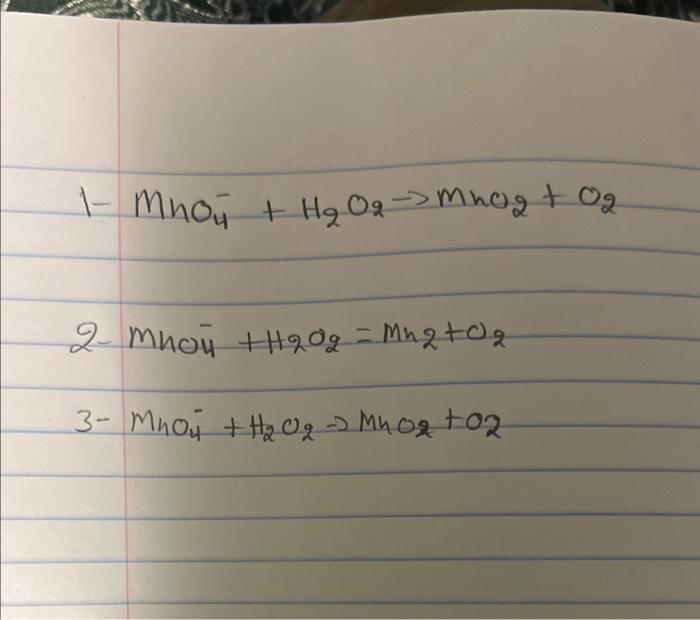 1- MnO₄⁻ + H₂O₂ → MnO₂ + O₂
2- MnO₄⁻ + H₂O₂ = Mn₂ + O₂
3- MnO₄⁻ + H₂O₂ → MnO₂ + O₂